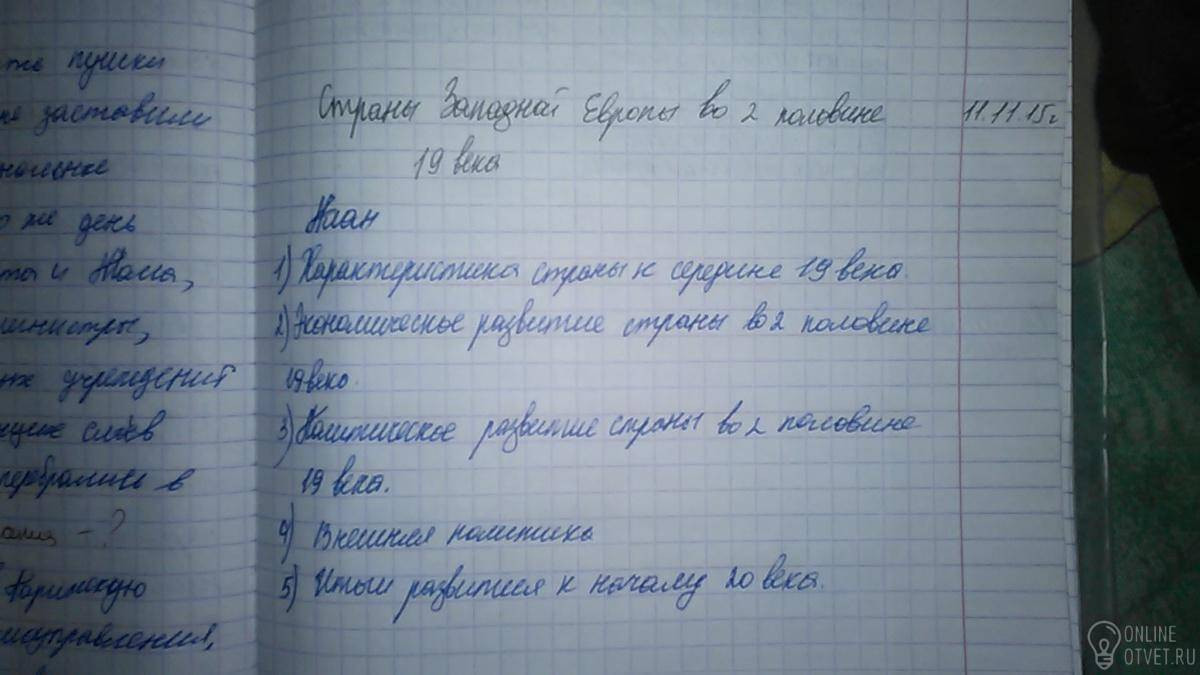 же пушки
не заставили
же день
та и Жана,
министры,
учреждений
слоёв
перебрались в
- ?
Парижскую
моуправления,
Страны Западной Европы во 2 половине 11.11.15г
19 века
План
1) Характеристика страны к середине 19 века.
2) Экономическое развитие страны во 2 половине
19 века.
3) Политическое развитие страны во 2 половине
19 века.
4) Внешняя политика
5) Итоги развития к началу 20 века.
ONLINE
OTVET.RU